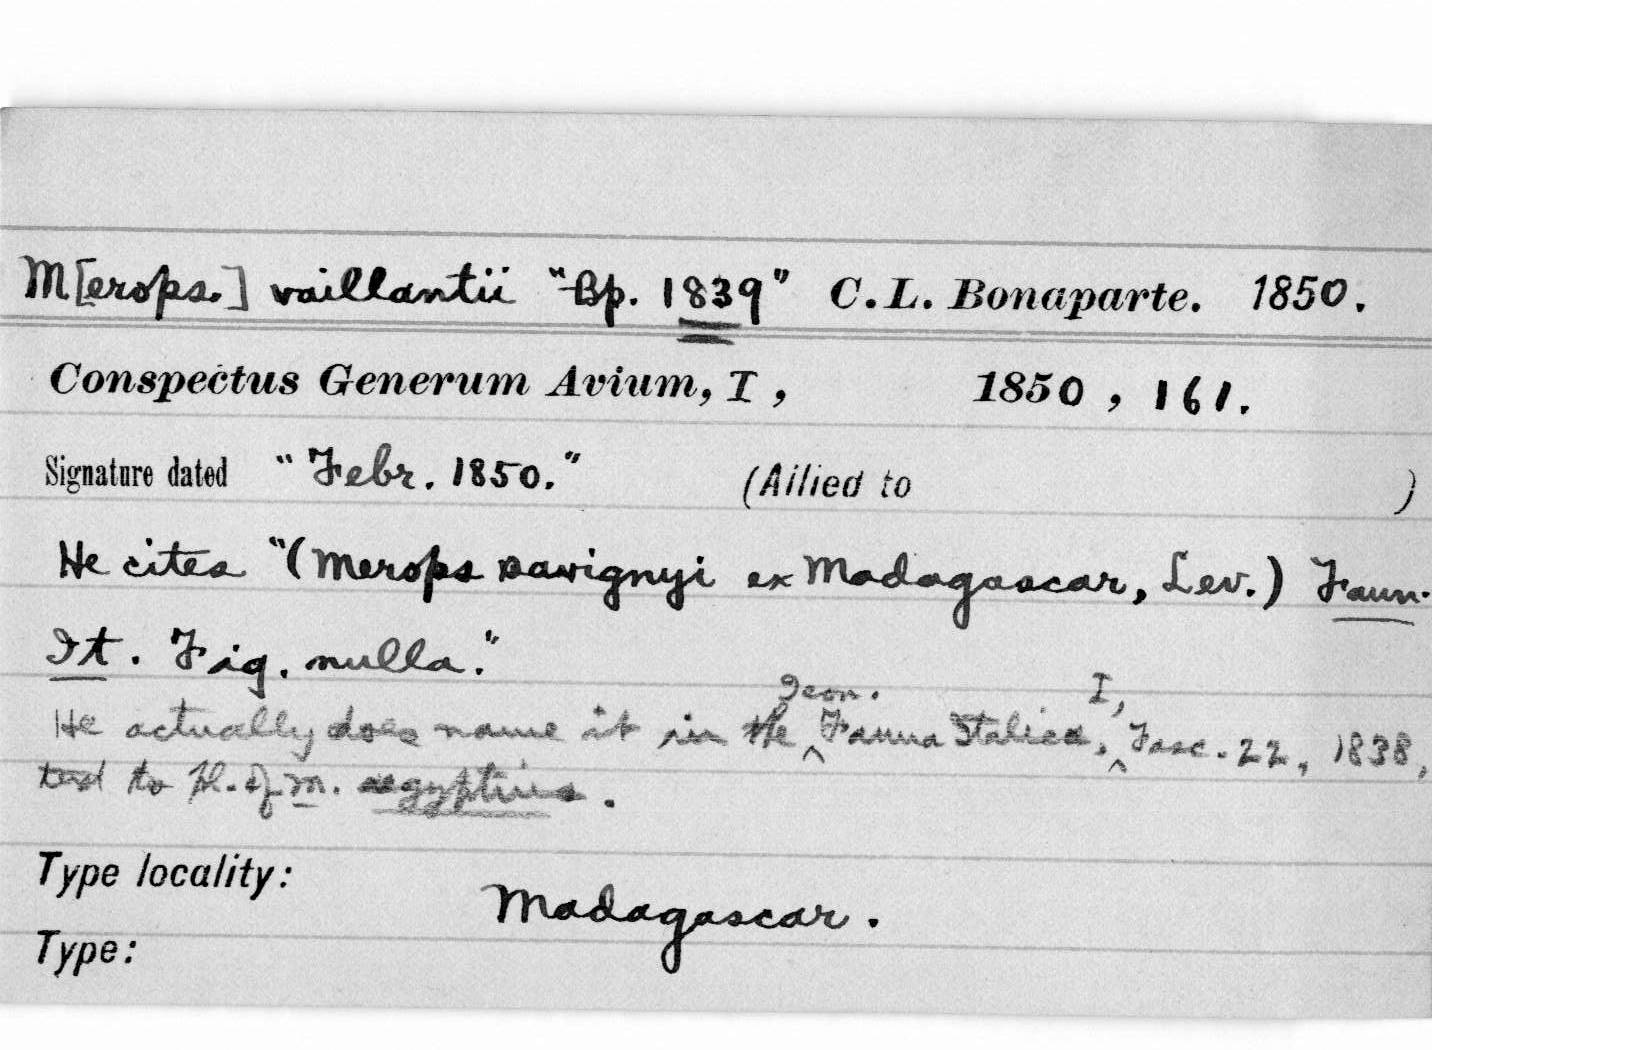 M[erops.] vaillantii "Bp. 1839" C. L. Bonaparte. 1850.
Conspectus Generum Avium, I, 1850, 161.
Signature dated "Febr. 1850." (Allied to )
He cites "(Merops savignyi ex Madagascar, Lev.) Faun.
It. Fig. nulla."
Icon. I,
He actually does name it in the ^ Fauna Italica, ^ Fasc. 22, 1838,
text to Pl. of M. aegyptius.
Type locality: Madagascar.
Type: